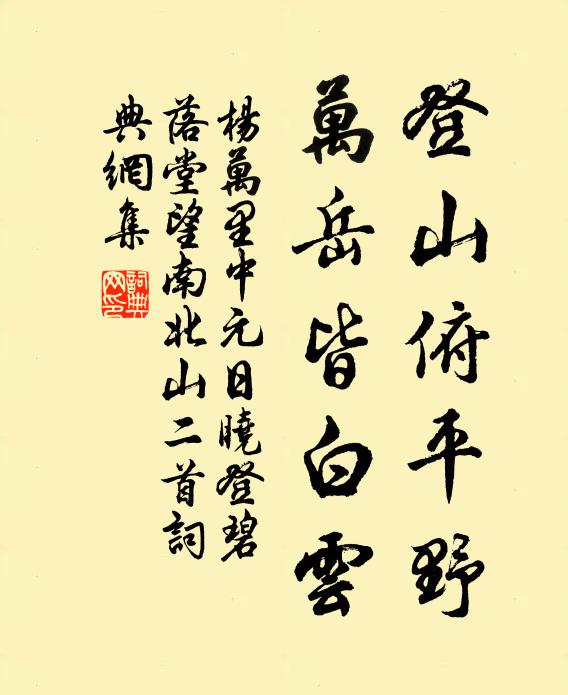 登山俯平野
萬岳皆白雲
楊萬里中元日曉登碧
落堂望南北山二首詞
典網集
詞典
网印